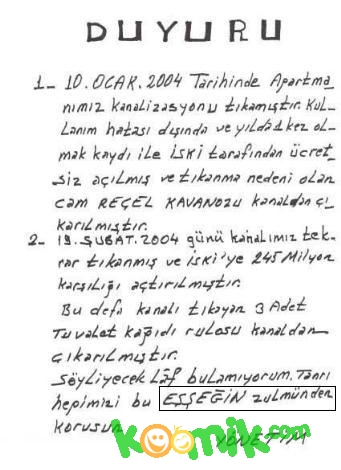 DUYURU
1- 10.OCAK.2004 Tarihinde Apartma
nımız kanalizasyonu tıkamıştır. Kul
lanım hatası dışında ve yılda 1 kez ol-
mak kaydı ile İSKİ tarafından ücret
siz açılmış ve tıkanma nedeni olan
cam REÇEL KAVANOZU kanaldan çı
karılmıştır.
2- 19.ŞUBAT.2004 günü kanalımız tek-
rar tıkanmış ve İSKİ'ye 245 Milyon
karşılığı açtırılmıştır.
Bu defa kanalı tıkayan 3 Adet
Tuvalet kağıdı rulosu kanaldan
çıkarılmıştır.
Söyliyecek Lâf bulamıyorum. Tanrı
hepimizi bu EŞŞEĞİN zulmünden
korusun.
YÖNETİM
komik.com